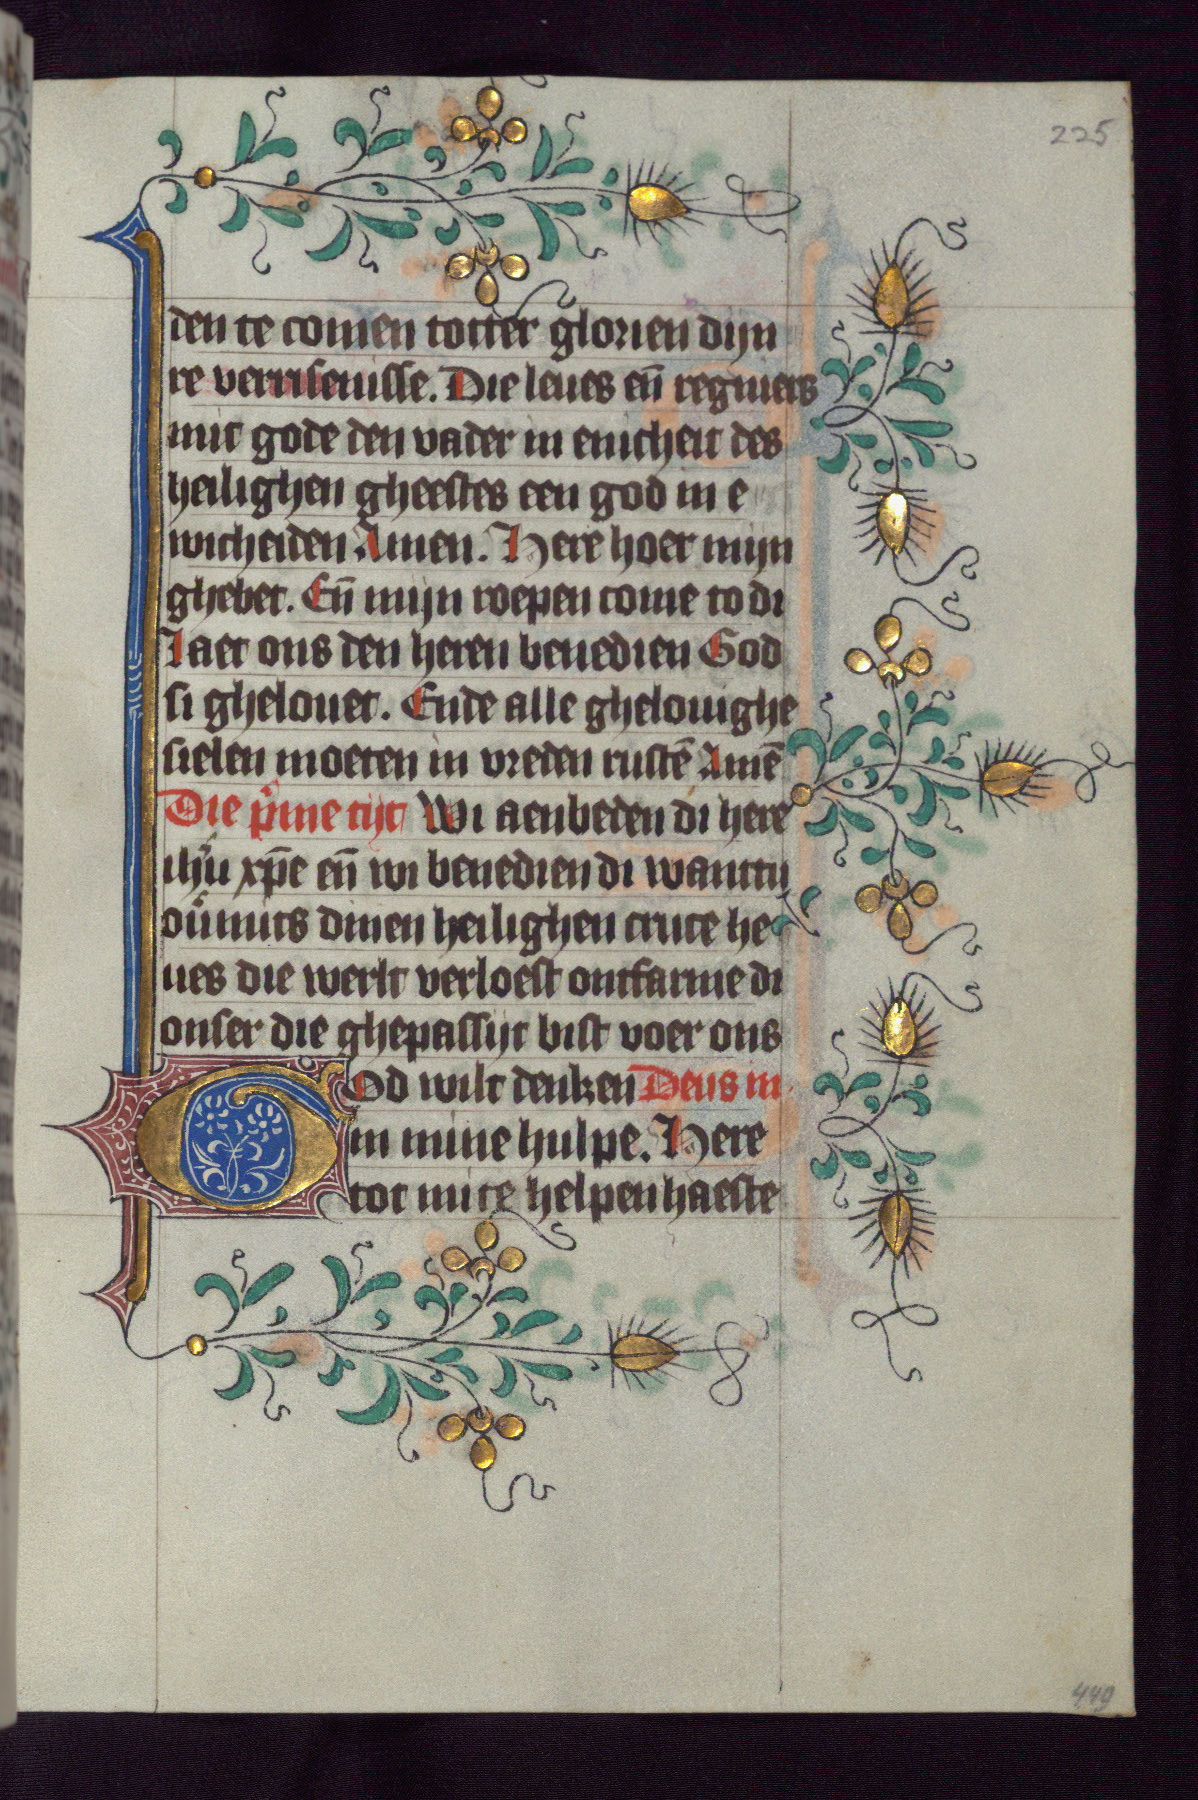 225
den te comen totter glorien dijn
re verrisenisse. Die leues eñ regniers
mit gode den vader in enicheit des
heilighen gheestes een god in e
wicheiden Amen. Here hoer mijn
ghebet. Eñ mijn roepen come to di
Laet ons den heren benedien God
si ghelouet. Ende alle ghelouighe
sielen moeten in vreden rustē Amē
Die p͛me tijt Wi aenbeden di here
ihū xp̄e eñ wi benedien di wanttu
ouͤmits dinen heilighen cruce he
ues die werlt verloest ontfarme di
onser die ghepassijt bist voer ons
God wilt denken Deus in
in mine hulpe. Here
tot mi te helpen haeste
449